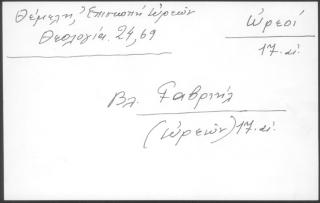 Θέμελη, Ἐπισκοπή Ὠρεῶν
Θεολογία 24, 69
Ὠρεοί
17. αἰ.
Βλ. Γαβριήλ
(Ὠρεῶν) 17. αἰ.